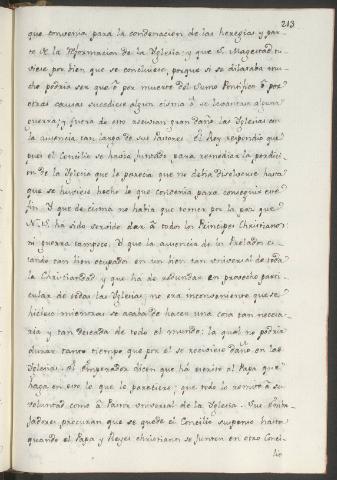 213
que convenia para la condenacion de las heregias y par-
te de la Reformacion de la Yglesia; y que S. Magestad tu-
viese por bien que se concluiese, porque si se dilataba mu-
cho podria ser que ó por muerte del Sumo Pontifice ó por
otras causas sucediese algun cisma ó se levantase alguna
guerra; y fuera de esto recivian gran daño las Yglesias en
la ausencia tan larga de sus Pastores. El Rey respondio que
pues el Concilio se havia juntado para remediar la perdici-
on de la Yglesia que le parecia que no debia disolverse hasta
que se huviese hecho lo que convenia para conseguir este
fin. Y que de cisma no habia que temer por la paz que
N. S. ha sido servido dar á todos los Principes Christianos
ni guerra tampoco. Y que la ausencia de los Prelados es-
tando tan bien ocupados en un bien tan universal de toda
la Christiandad y que há de redundar en provecho parti-
cular de todas las Yglesias, no era inconveniente que se
hiciese mientras se acababa de hacer una cosa tan necesa-
ria y tan deseada de todo el mundo; la qual no podria
durar tanto tiempo que por el se reciviese daño en las
Yglesias. Al Emperador dicen que há escrito al Papa que
haga en eso lo que le pareciere; que todo lo remite á su
voluntad como á Pastor universal de la Yglesia. Sus Emba-
jadores procuran que se quede el Concilio suspenso hasta
quando el Papa y Reyes christianos se junten en otro Conci-
lio